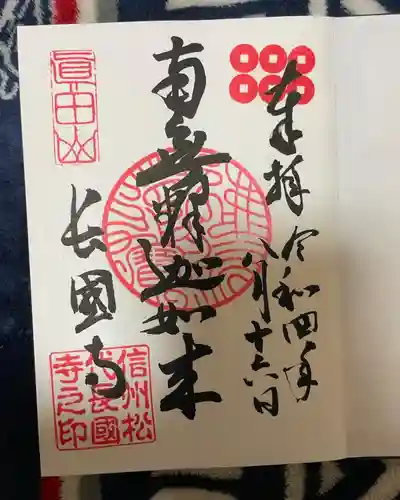 奉拝
令和四年
八月十六日
南無釈迦如来
眞田山
長國寺
信州松
代長國
寺之印